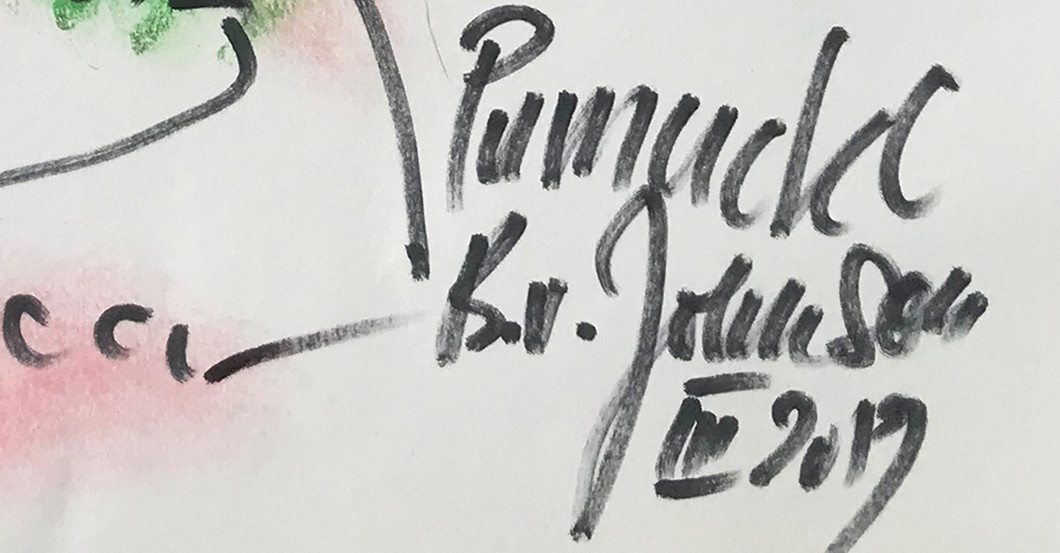 Pumuckl
B.v. Johnson
III 2019